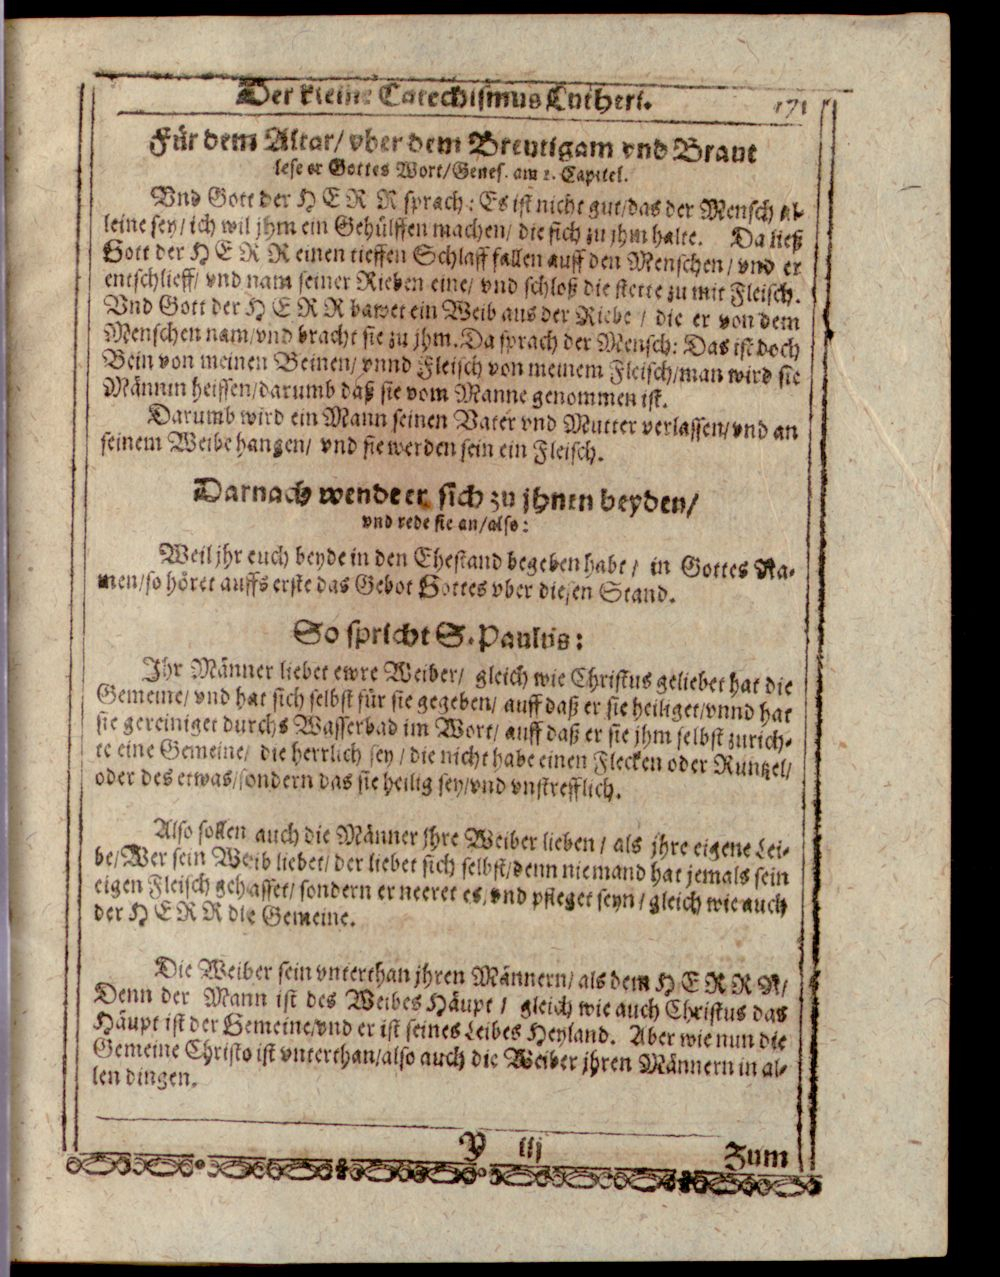 Der kleine Catechismus Lutheri. 171
Für dem Altar/ vber dem Breutigam vnd Braut
lese er Gottes Wort/Genes. am 2. Capitel.
Vnd Gott der HERR sprach: Es ist nicht gut/das der Mensch al-
leine sey/ ich wil jhm ein Gehülffen machen/ die sich zu jhm halte. Da ließ
Gott der HERR einen tieffen Schlaff fallen auff den Menschen/ vnd er
entschlieff/ vnd nam seiner Rieben eine/ vnd schloß die stette zu mit Fleisch.
Vnd Gott der HERR bawet ein Weib aus der Riebe / die er von dem
Menschen nam/vnd bracht sie zu jhm. Da sprach der Mensch: Das ist doch
Bein von meinen Beinen/ vnnd Fleisch von meinem Fleisch/man wird sie
Männin heissen/darumb daß sie vom Manne genommen ist.
Darumb wird ein Mann seinen Vater vnd Mutter verlassen/vnd an
seinem Weibe hangen/ vnd sie werden sein ein Fleisch.
Darnach wende er sich zu jhnen beyden/
vnd rede sie an/also:
Weil jhr euch beyde in den Ehestand begeben habt / in Gottes Na-
men/so höret auffs erste das Gebot Gottes vber diesen Stand.
So spricht S. Paulus:
Ihr Männer liebet ewre Weiber/ gleich wie Christus geliebet hat die
Gemeine/ vnd hat sich selbst für sie gegeben/ auff daß er sie heiliget/vnnd hat
sie gereiniget durchs Wasserbad im Wort/ auff daß er sie jhm selbst zurich-
te eine Gemeine/ die herrlich sey / die nicht habe einen Flecken oder Runtzel/
oder des etwas/sondern das sie heilig sey/vnd vnstrefflich.
Also sollen auch die Männer jhre Weiber lieben / als jhre eigene Lei-
be/Wer sein Weib liebet/ der liebet sich selbst/denn niemand hat jemals sein
eigen Fleisch gehasset/ sondern er neeret es/vnd pfleget seyn / gleich wie auch
der HERR die Gemeine.
Die Weiber sein vnterthan jhren Männern/ als dem HERRN/
Denn der Mann ist des Weibes Häupt / gleich wie auch Christus das
Häupt ist der Gemeine/vnd er ist seines Leibes Heyland. Aber wie nun die
Gemeine Christo ist vnterthan/also auch die Weiber jhren Männern in al-
len dingen.
Y iij Zum